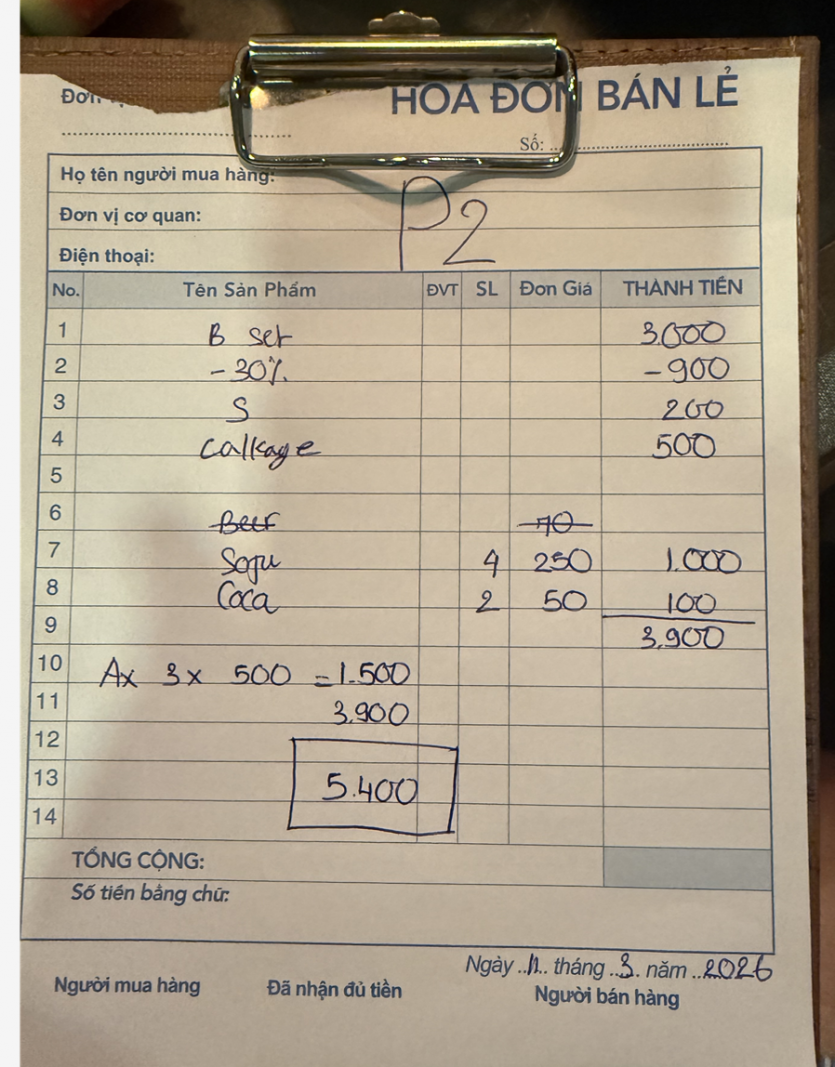 HOÁ ĐƠN BÁN LẺ
Số:
Họ tên người mua hàng:
Đơn vị cơ quan:
P2
Điện thoại:
No. Tên Sản Phẩm ĐVT SL Đơn Giá THÀNH TIỀN
1 B set 3.000
2 -30% -900
3 S 200
4 Calkage 500
5
6 Beer 70
7 Soju 4 250 1.000
8 Coca 2 50 100
9 3.900
10 A x 3 x 500 = 1.500
11 3.900
12
13 5.400
14
TỔNG CỘNG:
Số tiền bằng chữ:
Ngày 11 tháng 3 năm 2026
Người mua hàng Đã nhận đủ tiền Người bán hàng